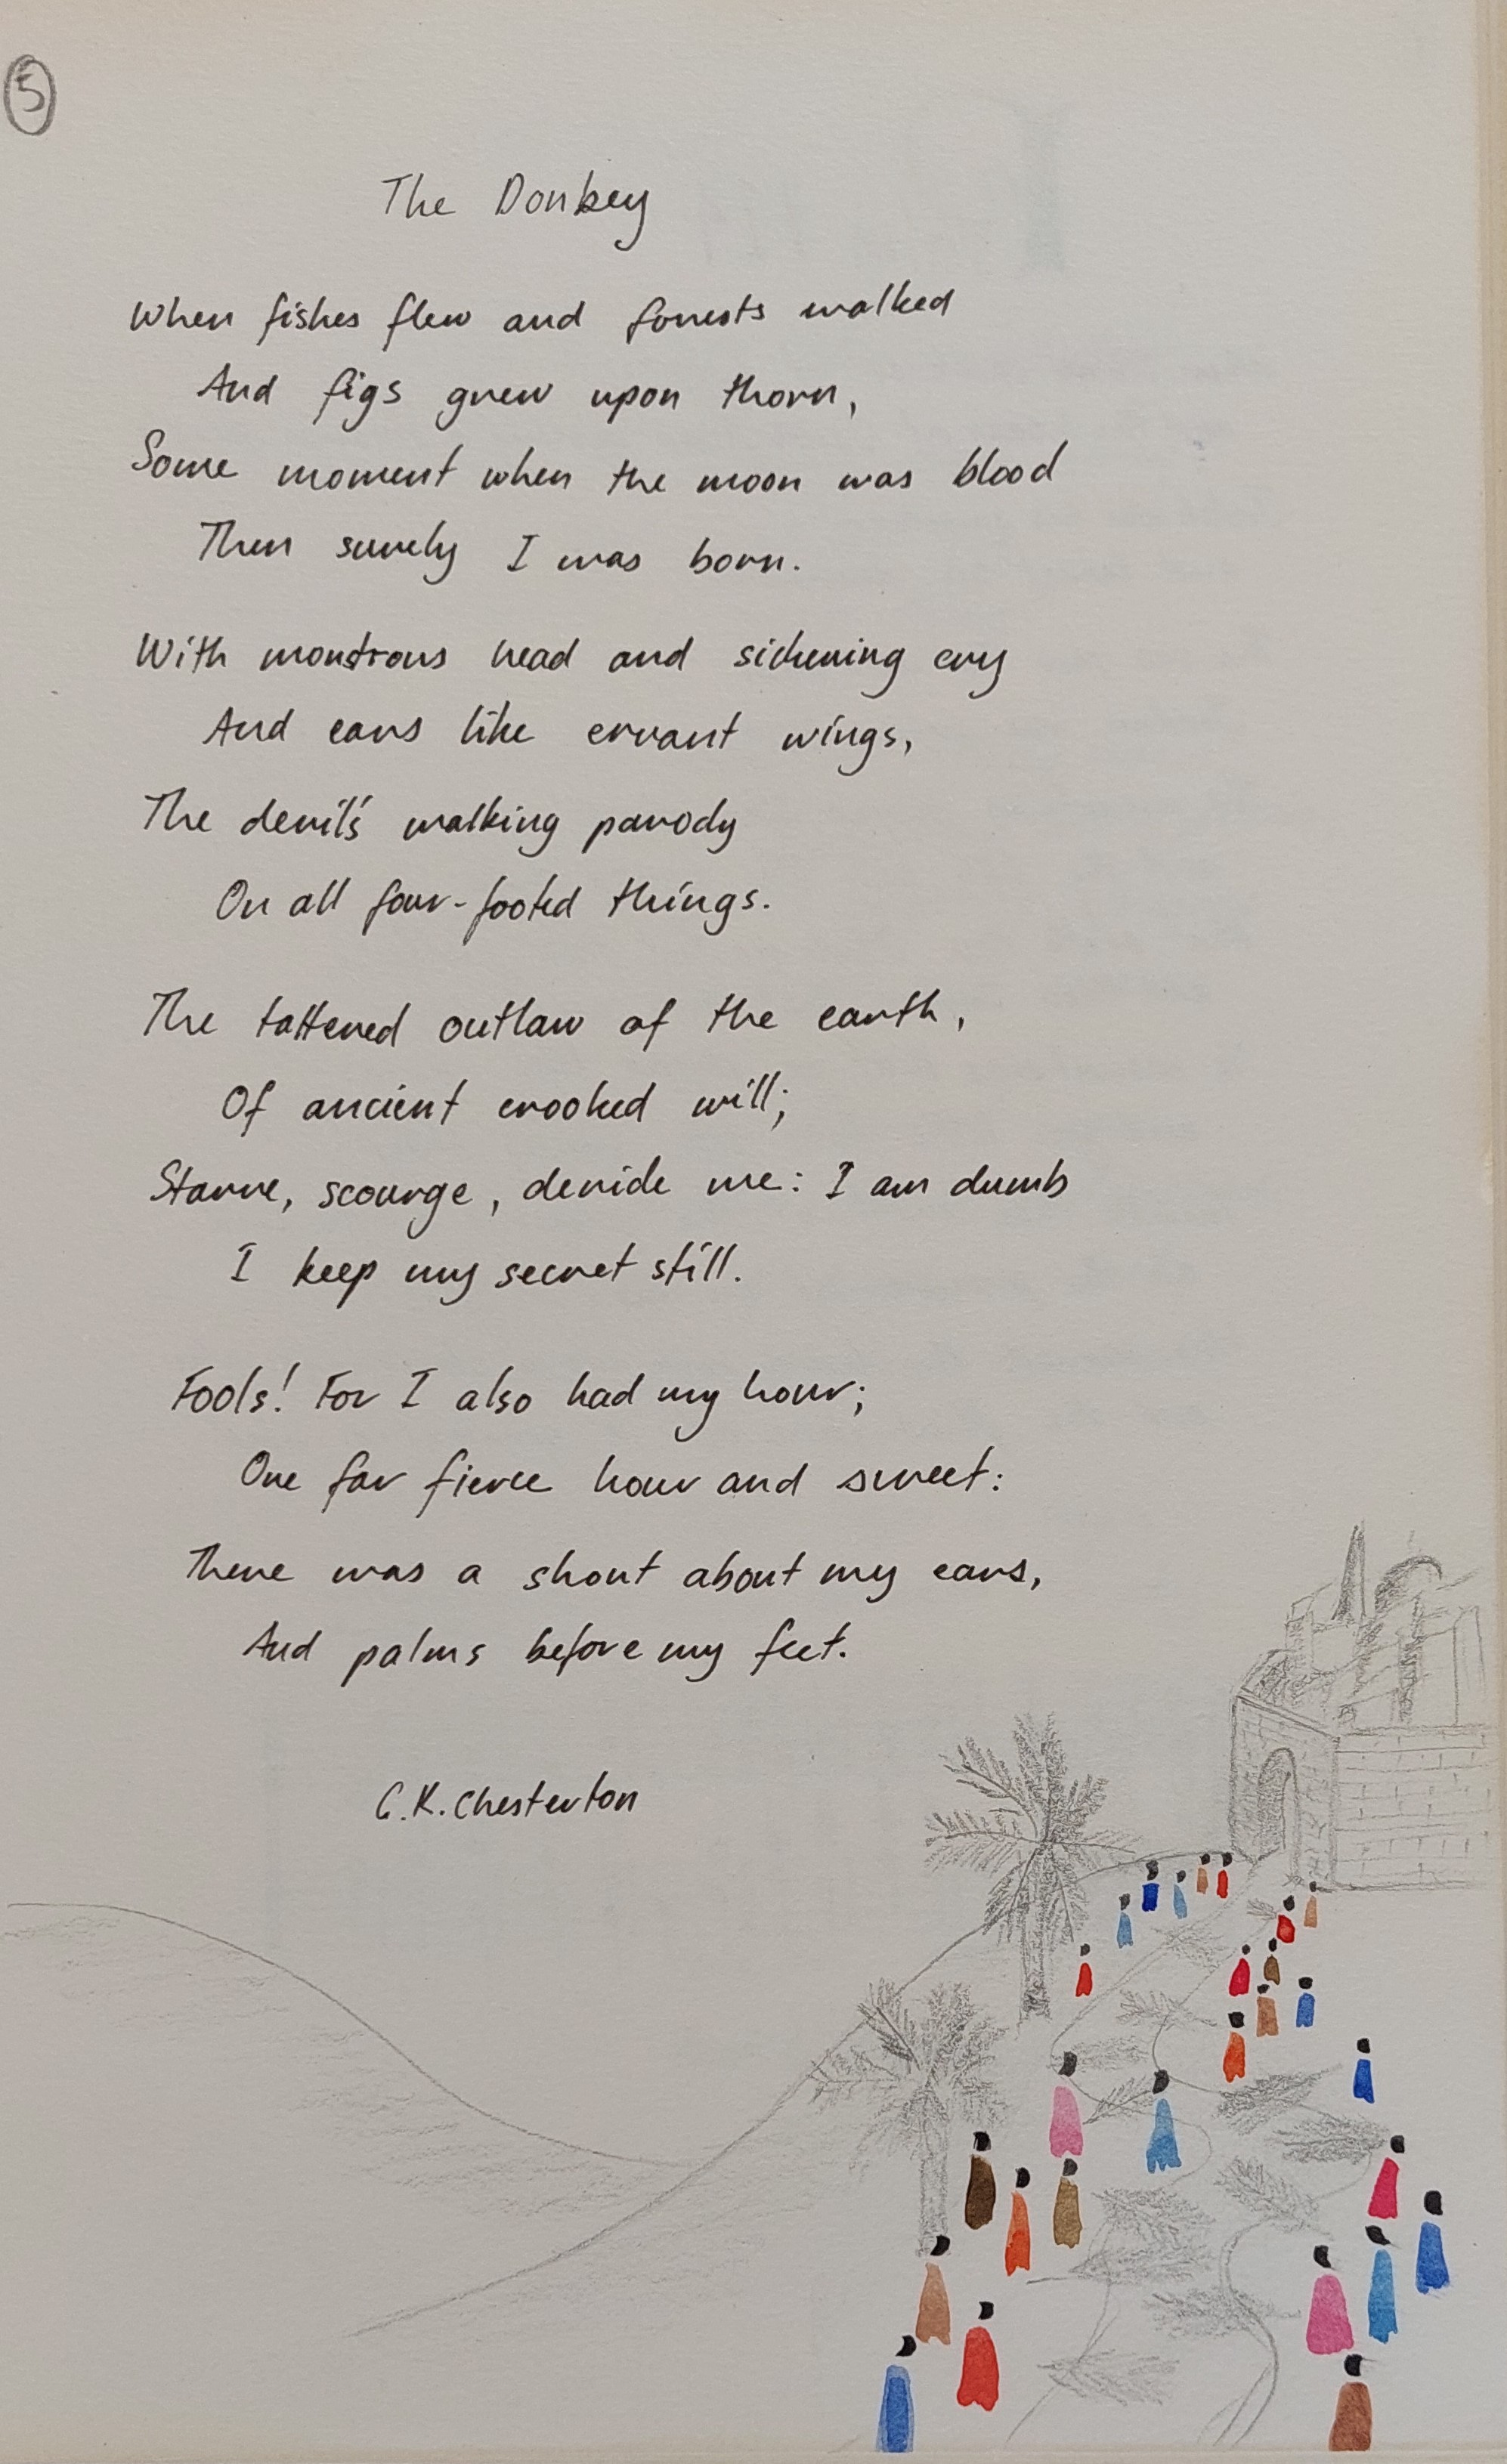 5
The Donkey
When fishes flew and forests walked
And figs grew upon thorn,
Some moment when the moon was blood
Then surely I was born.
With monstrous head and sickening cry
And ears like errant wings,
The devil's walking parody
On all four-footed things.
The tattered outlaw of the earth,
Of ancient crooked will;
Starve, scourge, deride me: I am dumb
I keep my secret still.
Fools! For I also had my hour;
One far fierce hour and sweet:
There was a shout about my ears,
And palms before my feet.
G.K. Chesterton